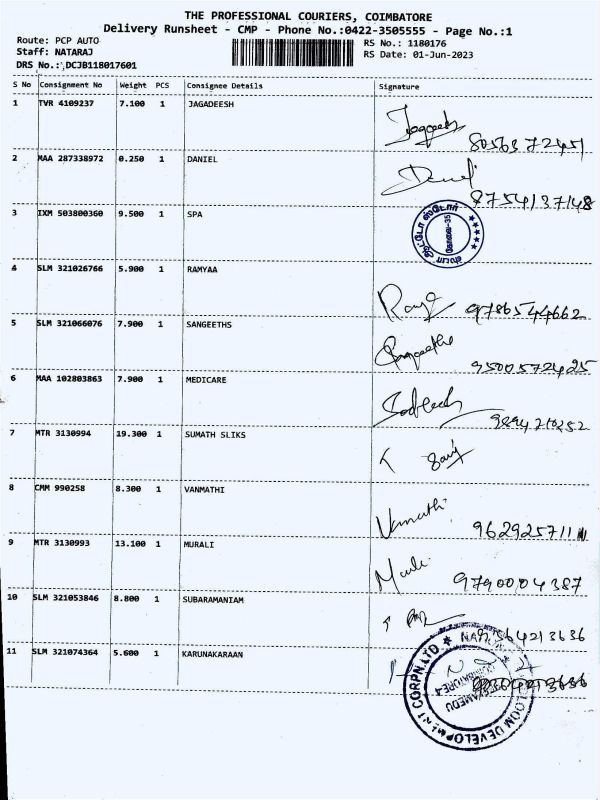 THE PROFESSIONAL COURIERS, COIMBATORE
Delivery Runsheet - CMP - Phone No.:0422-3505555 - Page No.:1
Route: PCP AUTO
RS No.: 1180176
Staff: NATARAJ
RS Date: 01-Jun-2023
DRS No.: DCJB118017601
S No Consignment No Weight PCS Consignee Details Signature
1 TVR 4109237 7.100 1 JAGADEESH
Jagadeesh 8056372451
2 MAA 287338972 0.250 1 DANIEL
Daniel 8754137148
3 IXM 503800360 9.500 1 SPA
ஸ்பா ஆட்டோ ஸ்டோர்
கோவை-35
4 SLM 321026766 5.900 1 RAMYAA
Ramya 9786544662
5 SLM 321066076 7.900 1 SANGEETHS
Sangeetha 9500572425
6 MAA 102803863 7.900 1 MEDICARE
9894210252
7 MTR 3130994 19.300 1 SUMATH SLIKS
8 CMM 990258 8.300 1 VANMATHI
Vanmathi 9629257111
9 MTR 3130993 13.100 1 MURALI
Murali 9790004387
10 SLM 321053846 8.800 1 SUBARAMANIAM
9364213636
11 SLM 321074364 5.600 1 KARUNAKARAAN
LOOM DEVELOPMENT CORPN.LTD.